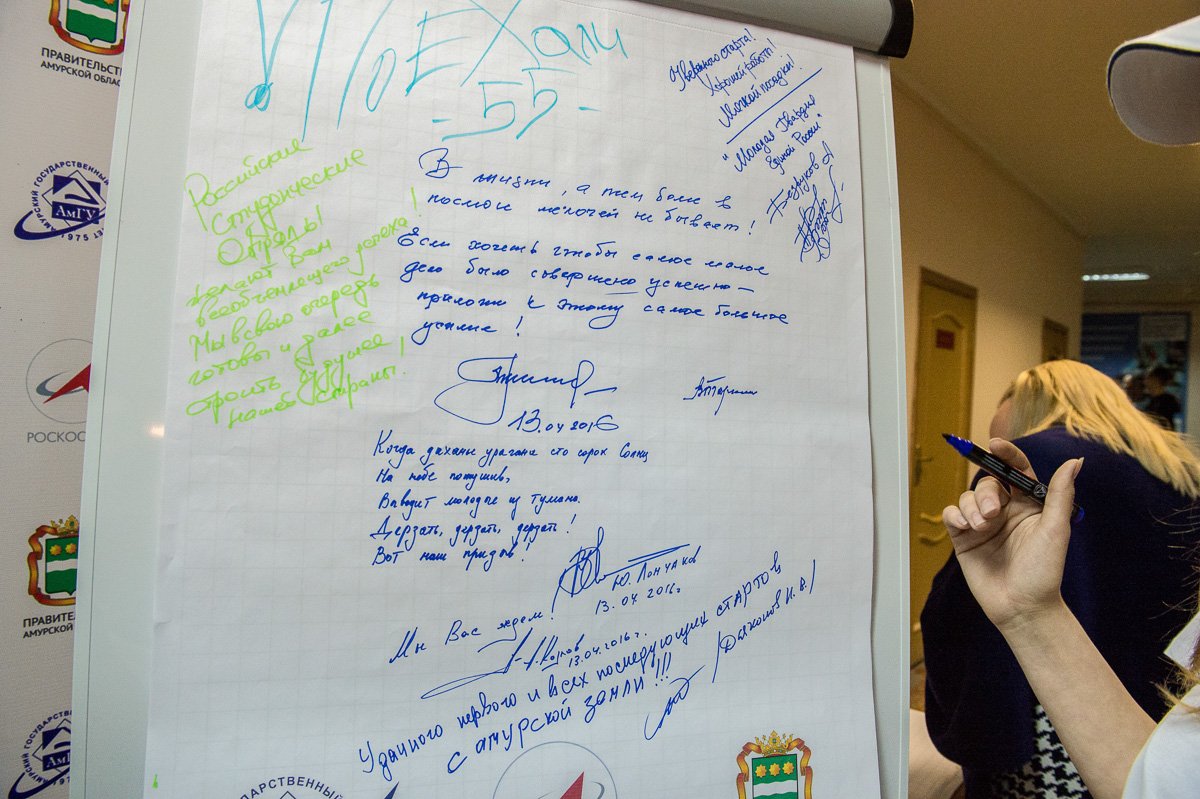 ПоЕХали
- 55 -
Уверенного старта!
Хорошей работы!
Мягкой посадки!
"Молодая Гвардия
Единой России"
Безруков А
Российские
Студенческие
Отряды
желают Вам
всеобъемлющего успеха!
Мы в свою очередь
готовы и далее
строить будущее
нашей страны!
В жизни, а тем более в
космосе мелочей не бывает!
Если хочешь чтобы самое малое
дело было совершено успешно –
приложи к этому самое большое
усилие!
13.04 2016
Когда диханье урагана сто сорок Солнц
На небе потушив,
Выводит молодые из тумана.
Дерзать, дерзать, дерзать!
Вот наш призыв!
Ю. Лончаков
13.04 2016г
Мы Вас ждем!
Козлов
13.04.2016г.
Удачного первого и всех последующих стартов
с амурской земли!!!
/Дьяконов И.А/
ПРАВИТЕЛЬСТ
АМУРСКОЙ ОБЛАС
АМУРСКИЙ ГОСУДАРСТВЕННЫЙ
АмГУ
1975
РОСКОС
ПРАВИТЕ
АМУРСКОЙ
АМУРСКИЙ ГОСУДАРСТВ
АмГ
ДАРСТВЕННЫЙ